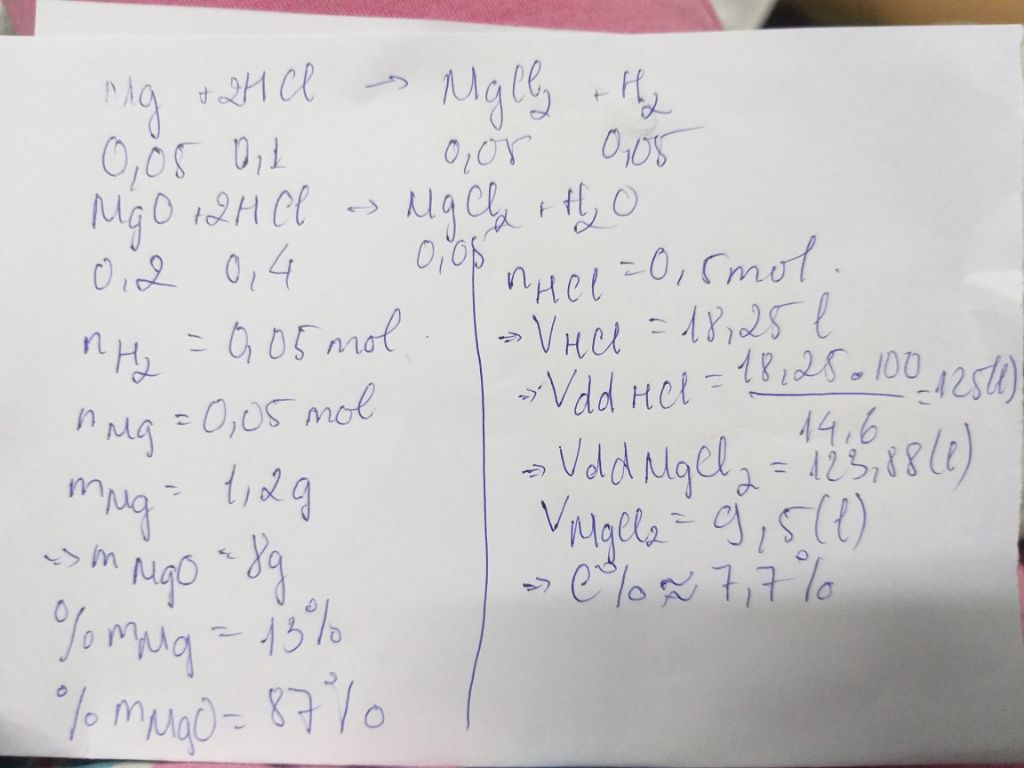 Mg + 2HCl → MgCl₂ + H₂
0,05 0,1 0,05 0,05
MgO + 2HCl → MgCl₂ + H₂O
0,2 0,4 0,05
nH₂ = 0,05 mol.
nMg = 0,05 mol
mMg = 1,2g
=> mMgO = 8g
%mMg = 13%
%mMgO = 87%
nHCl = 0,5mol.
=> VHCl = 18,25 l
=> Vdd HCl = 18,25 . 100 / 14,6 = 125(l)
=> Vdd MgCl₂ = 123,88(l)
VMgCl₂ = 9,5(l)
=> C% ≈ 7,7%